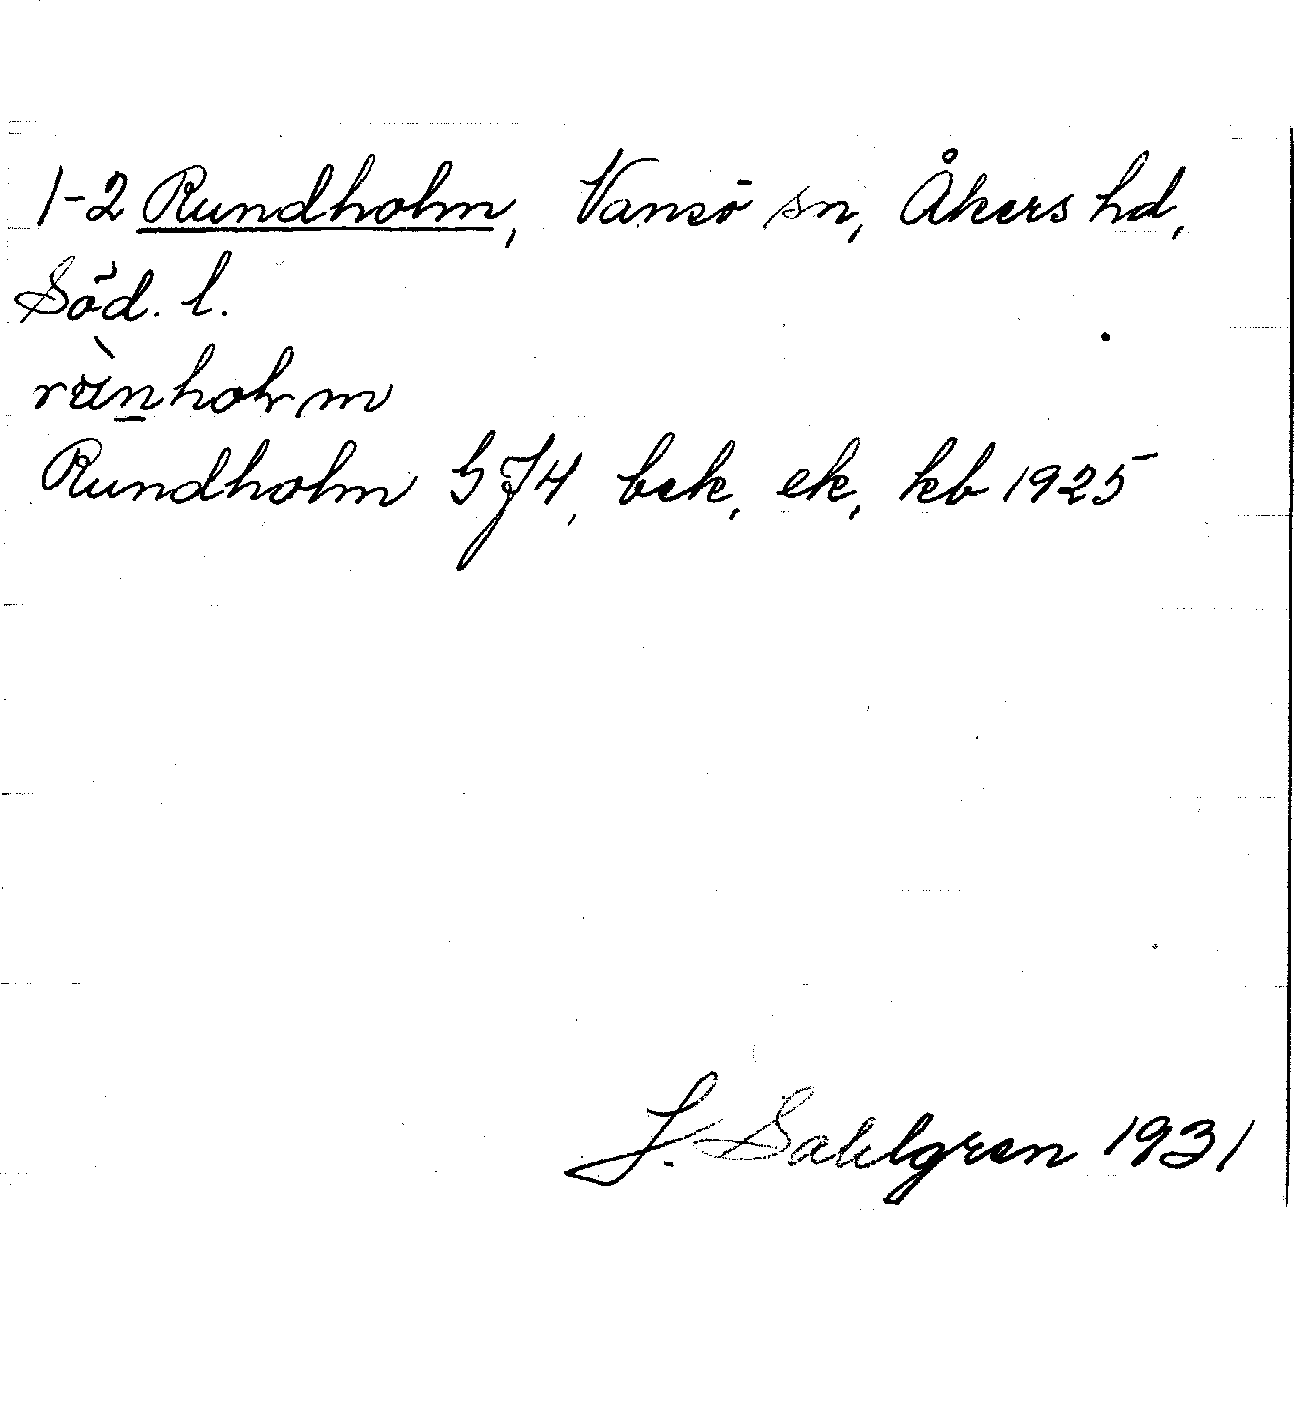 1-2 Rundholm, Vansö sn, Åkers hd,
Söd. l.
Rundholm GJ4, bek, ek, kb 1925
J. Sahlgren 1931